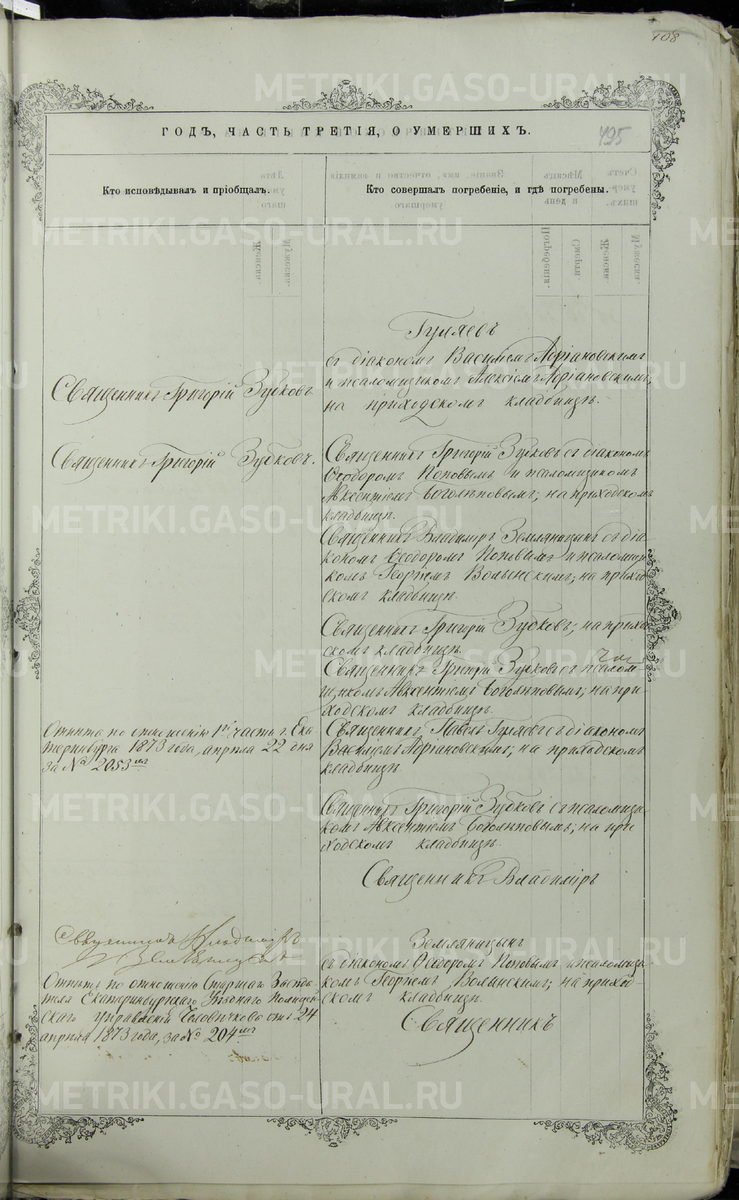 108
ГОДЪ, ЧАСТЬ ТРЕТІЯ, О УМЕРШИХЪ.
495
Кто исповѣдывалъ и пріобщалъ.
Кто совершалъ погребеніе, и гдѣ погребены.
Гуляевъ
съ діакономъ Василіемъ Адріановскимъ
и псаломщикомъ Алексіемъ Адріановскимъ;
на приходскомъ кладбищѣ.
Священникъ Григорій Зубковъ
Священникъ Григорій Зубковъ.
Священникъ Григорій Зубковъ съ діакономъ
Ѳеодоромъ Поповымъ и псаломщикомъ
Авксентіемъ Боголѣповымъ; на приходскомъ
кладбищѣ.
Священникъ Владиміръ Земляницынъ съ діа-
кономъ Ѳеодоромъ Поповымъ и псаломщи-
комъ Георгіемъ Волынскимъ; на приход-
скомъ кладбищѣ.
Священникъ Григорій Зубковъ; на приход-
скомъ кладбищѣ.
Священникъ Григорій Зубковъ съ псалом-
щикомъ Авксентіемъ Боголѣповымъ; на при-
ходскомъ кладбищѣ.
Отпѣто по отношенію 1й части г. Ека-
теринбурга 1873 года, апрѣля 22 дня
за № 2053мъ
Священникъ Павелъ Гуляевъ съ діакономъ
Василіемъ Адріановскимъ; на приходскомъ
кладбищѣ.
Священникъ Григорій Зубковъ съ псаломщи-
комъ Авксентіемъ Боголѣповымъ; на при-
ходскомъ кладбищѣ.
Священникъ Владиміръ
Священникъ Владиміръ
Земляницынъ
Земляницынъ
съ діакономъ Ѳеодоромъ Поповымъ и псаломщи-
комъ Георгіемъ Волынскимъ; на приход-
скомъ кладбищѣ.
Отпѣтъ по отношенію Старшаго Засѣда-
теля Екатеринбургскаго Уѣзднаго Полицей-
скаго Управленія отъ 24
апрѣля 1873 года, за № 204мъ
Священникъ
METRIKI.GASO-URAL.RU